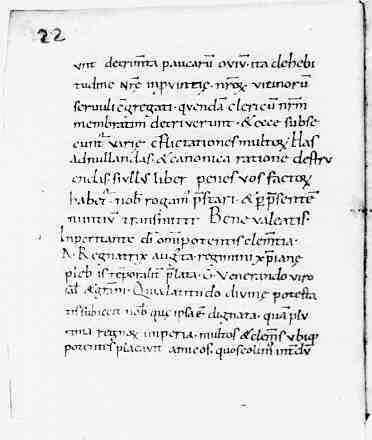 22
unt detrim̄ta paucarū oviū. ita debebi
tudine nr̄ę inpunitię. nr̄oꝝ vicinorū
servuli c̄gregati. quendā clericū nr̄m
membratim detriverunt. & ecce subse
cunt᷑ varię c̄flictationes multoꝝ. Has
adnullandas. & canonica ratione destru
endas. si ullus liber penes vos factoꝝ
habet᷑. nob̄ rogam᷑ p̄stari. & ꝑ p̄sentē
nuntiū transmitti. Bene valeatis.
Imperitante dī om̄ipotentis clem̄tia.
A. Regnatrix auḡta. regimini xp̄ianę
pleb̄ is tēporalit᷑ p̄lata. G. Venerando viro
& gr̄am. Qua latitudo divinę potesta
tis subiecit nob̄ quę ipsa ē dignata. quā plu
rima regnoꝝ imperia. multos & ubiqꝫ
potentis placavit amicos. quos colim᷑